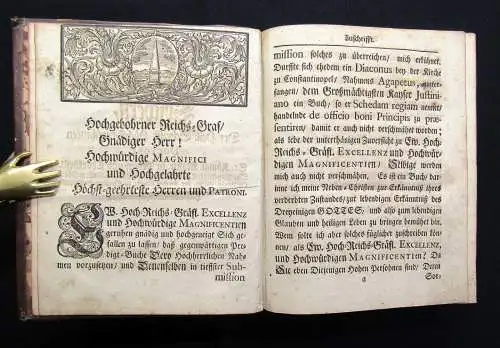 Hochgebohrner Reichs-Graf/
Gnädiger Herr!
Hochwürdige MAGNIFICI
und Hochgelahrte
Höchst-geehrteste Herren und PATRONI.
EW. Hoch-Reichs-Gräfl. EXCELLENZ
und Hochwürdige MAGNIFICENTIEN
geruhen gnädig und hochgeneigt Sich gefallen
zu lassen/ daß gegenwärtigen Pre-
digt-Buche Dero Hochherrlichen Nah-
men vorzusetzen/ und Denenselben in tieffster Sub-
mission
Zuschrifft.
mission solches zu überreichen/ mich erkühnet.
Durffte sich ehedem ein Diaconus bey der Kirche
zu Constantinopel/ Nahmens Agapetus,
dem Großmächtigsten Kayser Justini-
ano ein Buch/ so er Schedam regiam nennet/
handelnde de officio boni Principis zu præ-
sentiren/ damit er auch nicht verschmähet worden;
als lebe der unterthänigen Zuversicht zu Ew. Hoch-
Reichs-Gräfl. EXCELLENZ und Hochwür-
digen MAGNIFICENTIEN/ werden
mich auch nicht verschmähen. Es ist ein Buch/ dar-
inne ich meine Neben-Christen zur Erkäntniß ihres
verderbten Zustandes/ zur lebendigen Erkäntniß des
Dreyeinigen GOTTES, und also zum lebendigen
Glauben und heiligen Leben zu bringen bemühet bin.
Wem solte ich also solches füglicher zuschreiben kön-
nen/ als Ew. Hoch-Reichs-Gräfl. EXCELLENZ,
und Hochwürdigen MAGNIFICENTIEN? Da
Sie eben Diejenigen Hohen Personen sind/ Denen
a